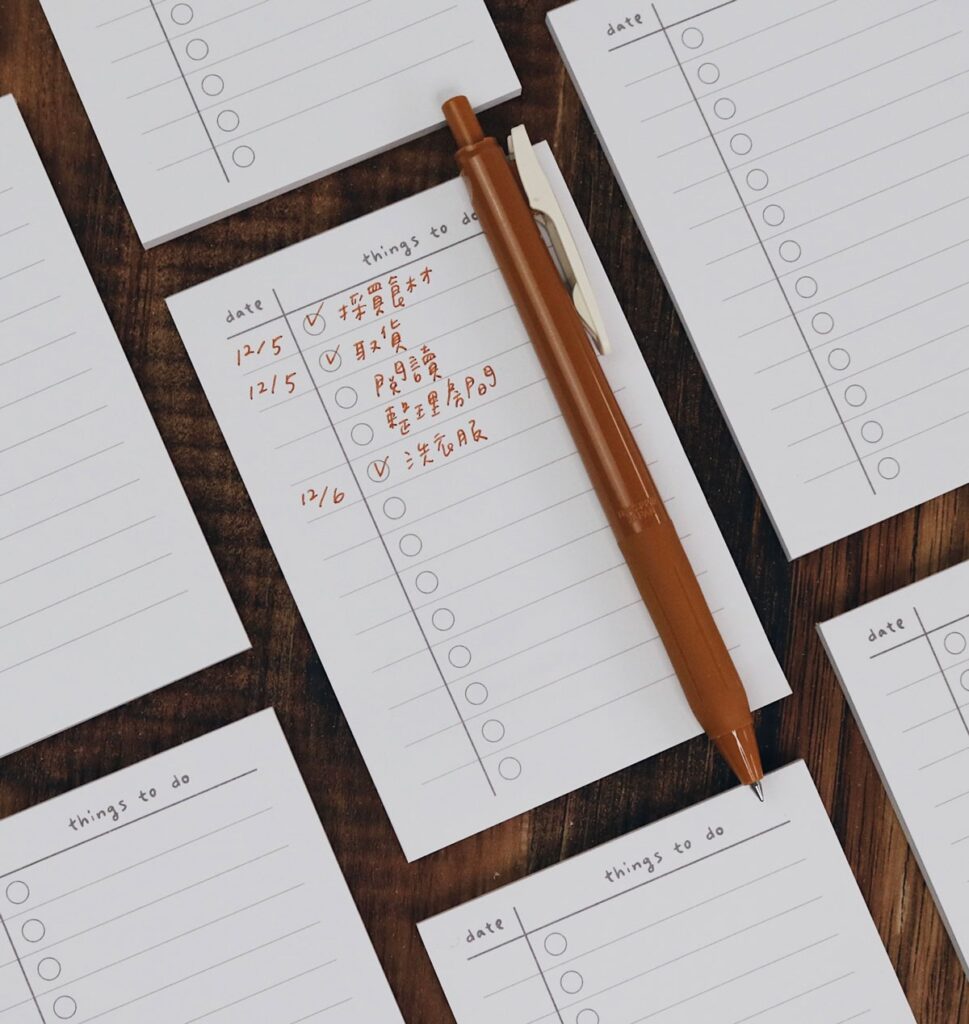 date
things to do
date
12/5 採買食材
12/5 取貨
閱讀
整理房間
12/6 洗衣服
date
things to do
things to do
date